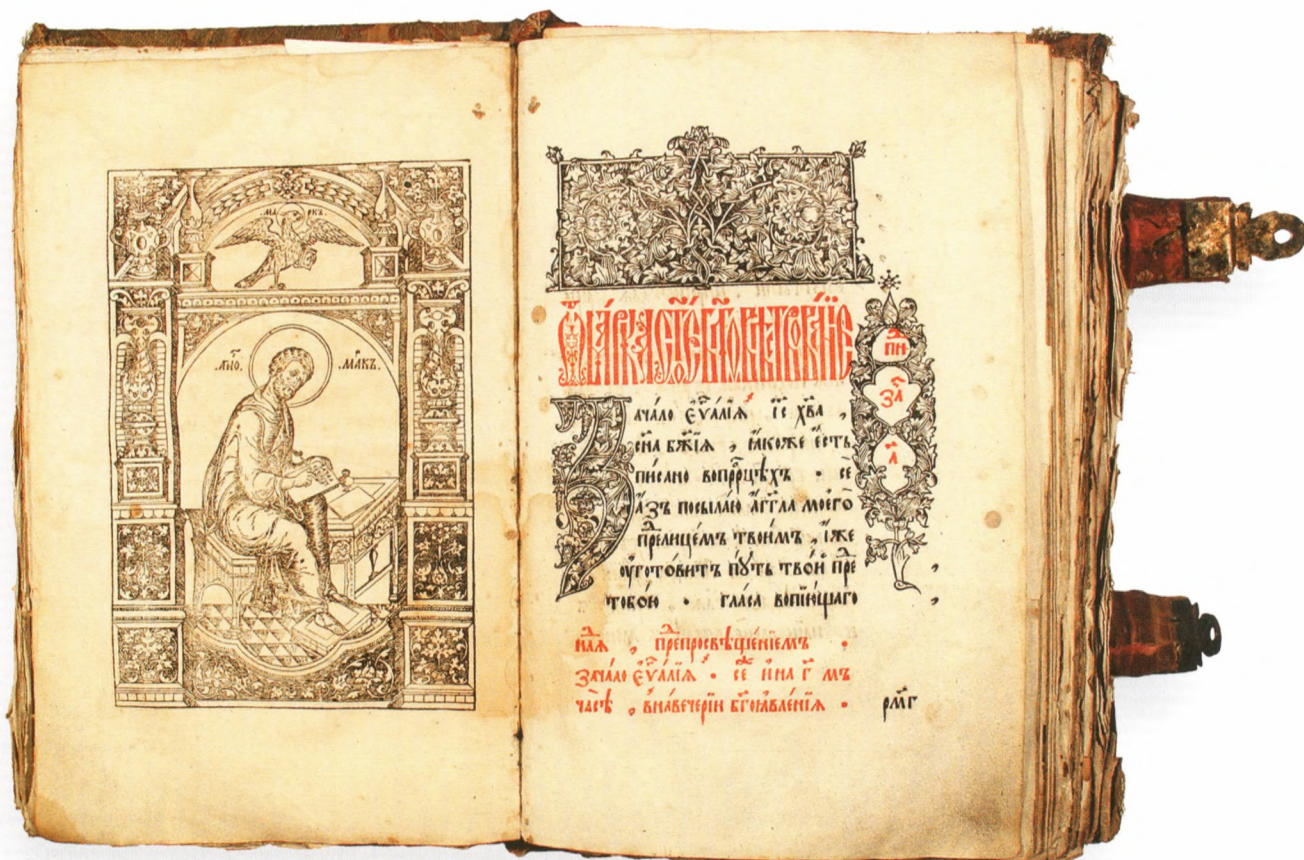 МА РКЪ.
.АПО. МАРКЪ.
Ѿ МАРКА СТ҃ОЕ БЛ҃ГОВѢСТВОВАНЇЕ
ЗАЧАЛО ЕѴⷢ҇АЛЇѦ ІС҃ ХВ҃А ,
СН҃А БЖ҃ЇѦ , ꙖКОЖЕ ЕСТЬ
ПИСАНО ВОПРРⷪ҇ЦѢХЪ · СЕ
АЗЪ ПОСЫЛАЮ АГГ҃ЛА МОЕГО
ПРЕⷣЛИЦЕМЪ ТВОИМЪ , ИЖЕ
ОУГОТОВИТЪ ПУТЬ ТВОИ ПРЕⷣ
ТОБОЮ · ГЛАСА ВОПЇЮЩАГО ,
ПНⷣ
ЗАⷱ҇
А҃
НЛѦⷣ , ПРЕⷣПРОСВѢЩЕНЇЕМЪ ·
ЗАЧАЛО ЕѴⷢ҇АЛЇѦ · СЕ И НА Г҃ МЪ
ЧАСѢ , ВНАВЕЧЕРЇИ БГ҃ОꙖВЛЕНЇѦ ·
РМ҃Г